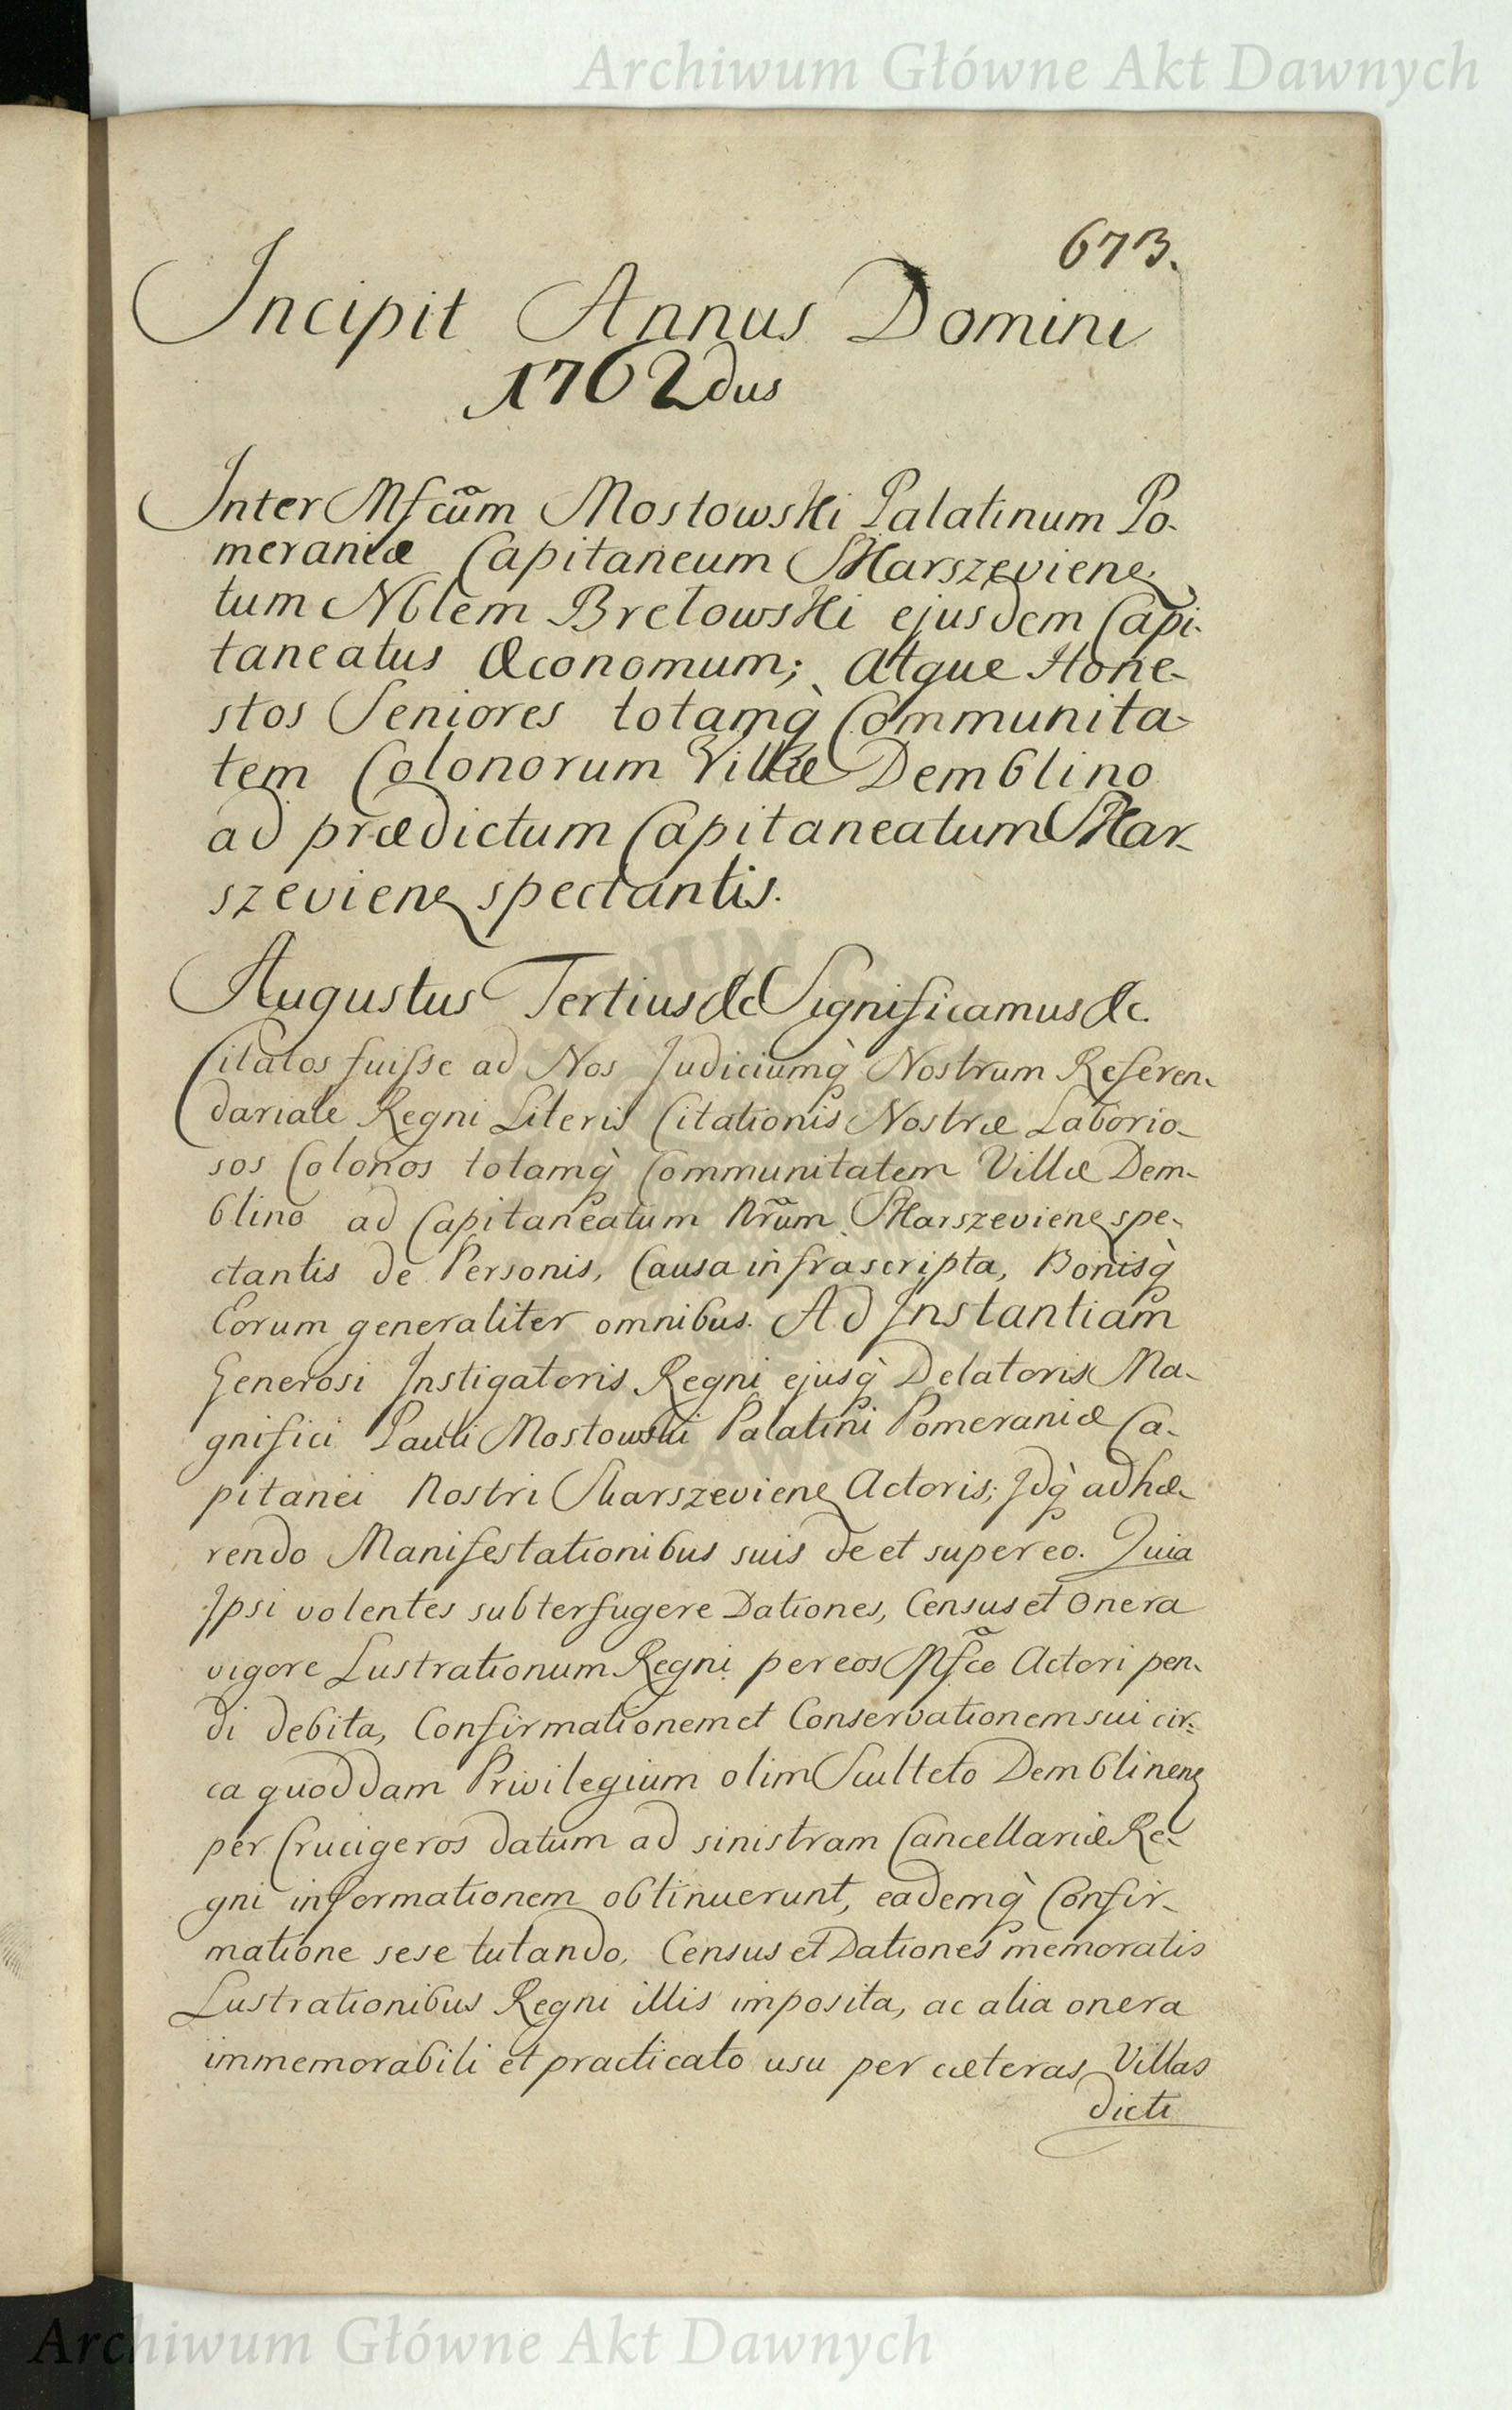 Archiwum Główne Akt Dawnych
673.
Incipit Annus Domini
1762dus
Inter Mfcu͠m Mostowski Palatinum Po-
meraniæ Capitaneum Skarszevienę
tum Nblem Bretowski ejusdem Capi-
taneatus Œconomum; Atque Hone-
stos Seniores totamq̀ Communita-
tem Colonorum Villæ Demblino
ad prædictum Capitaneatum Skar-
szevienę spectantis.
Augustus Tertius &c Significamus &c.
Citatos fuisse ad Nos Judiciumq̀ Nostrum Referen-
dariale Regni Literis Citationis Nostræ Laborio-
sos Colonos totamq̀ Communitatem Villæ Dem-
blino ad Capitaneatum Nr͠um Skarszevienę spe-
ctantis de Personis, Causa infrascripta, Bonisq̀
Eorum generaliter omnibus. Ad Instantiam
Generosi Instigatoris Regni ejusq̀ Delatoris Ma-
gnifici Pauli Mostowski Palatini Pomeraniæ Ca-
pitanei Nostri Skarszevienę Actoris; Idq̀ adhæ-
rendo Manifestationibus suis de et super eo. Quia
Ipsi volentes subterfugere Dationes, Census et Onera
vigore Lustrationum Regni per eos Mfc͠o Actori pen-
di debita, Confirmationem et Conservationem sui cir-
ca quoddam Privilegium olim Sculteto Demblinenę
per Crucigeros datum ad sinistram Cancellariæ Re-
gni informationem obtinuerunt, eademq̀ Confir-
matione sese tutando, Census et Dationes memoratis
Lustrationibus Regni illis imposita, ac alia onera
immemorabili et practicato usu per cæteras Villas
dicti
Archiwum Główne Akt Dawnych